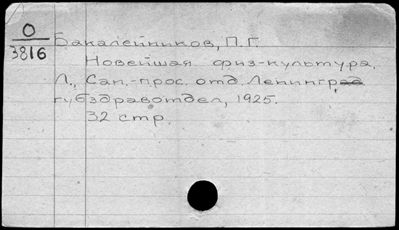 О
3816
Бакалейников, П.Г.
Новейшая физ-культура.
Л., Сан.-прос. отд. Ленинград
губздравотдел, 1925.
32 стр.